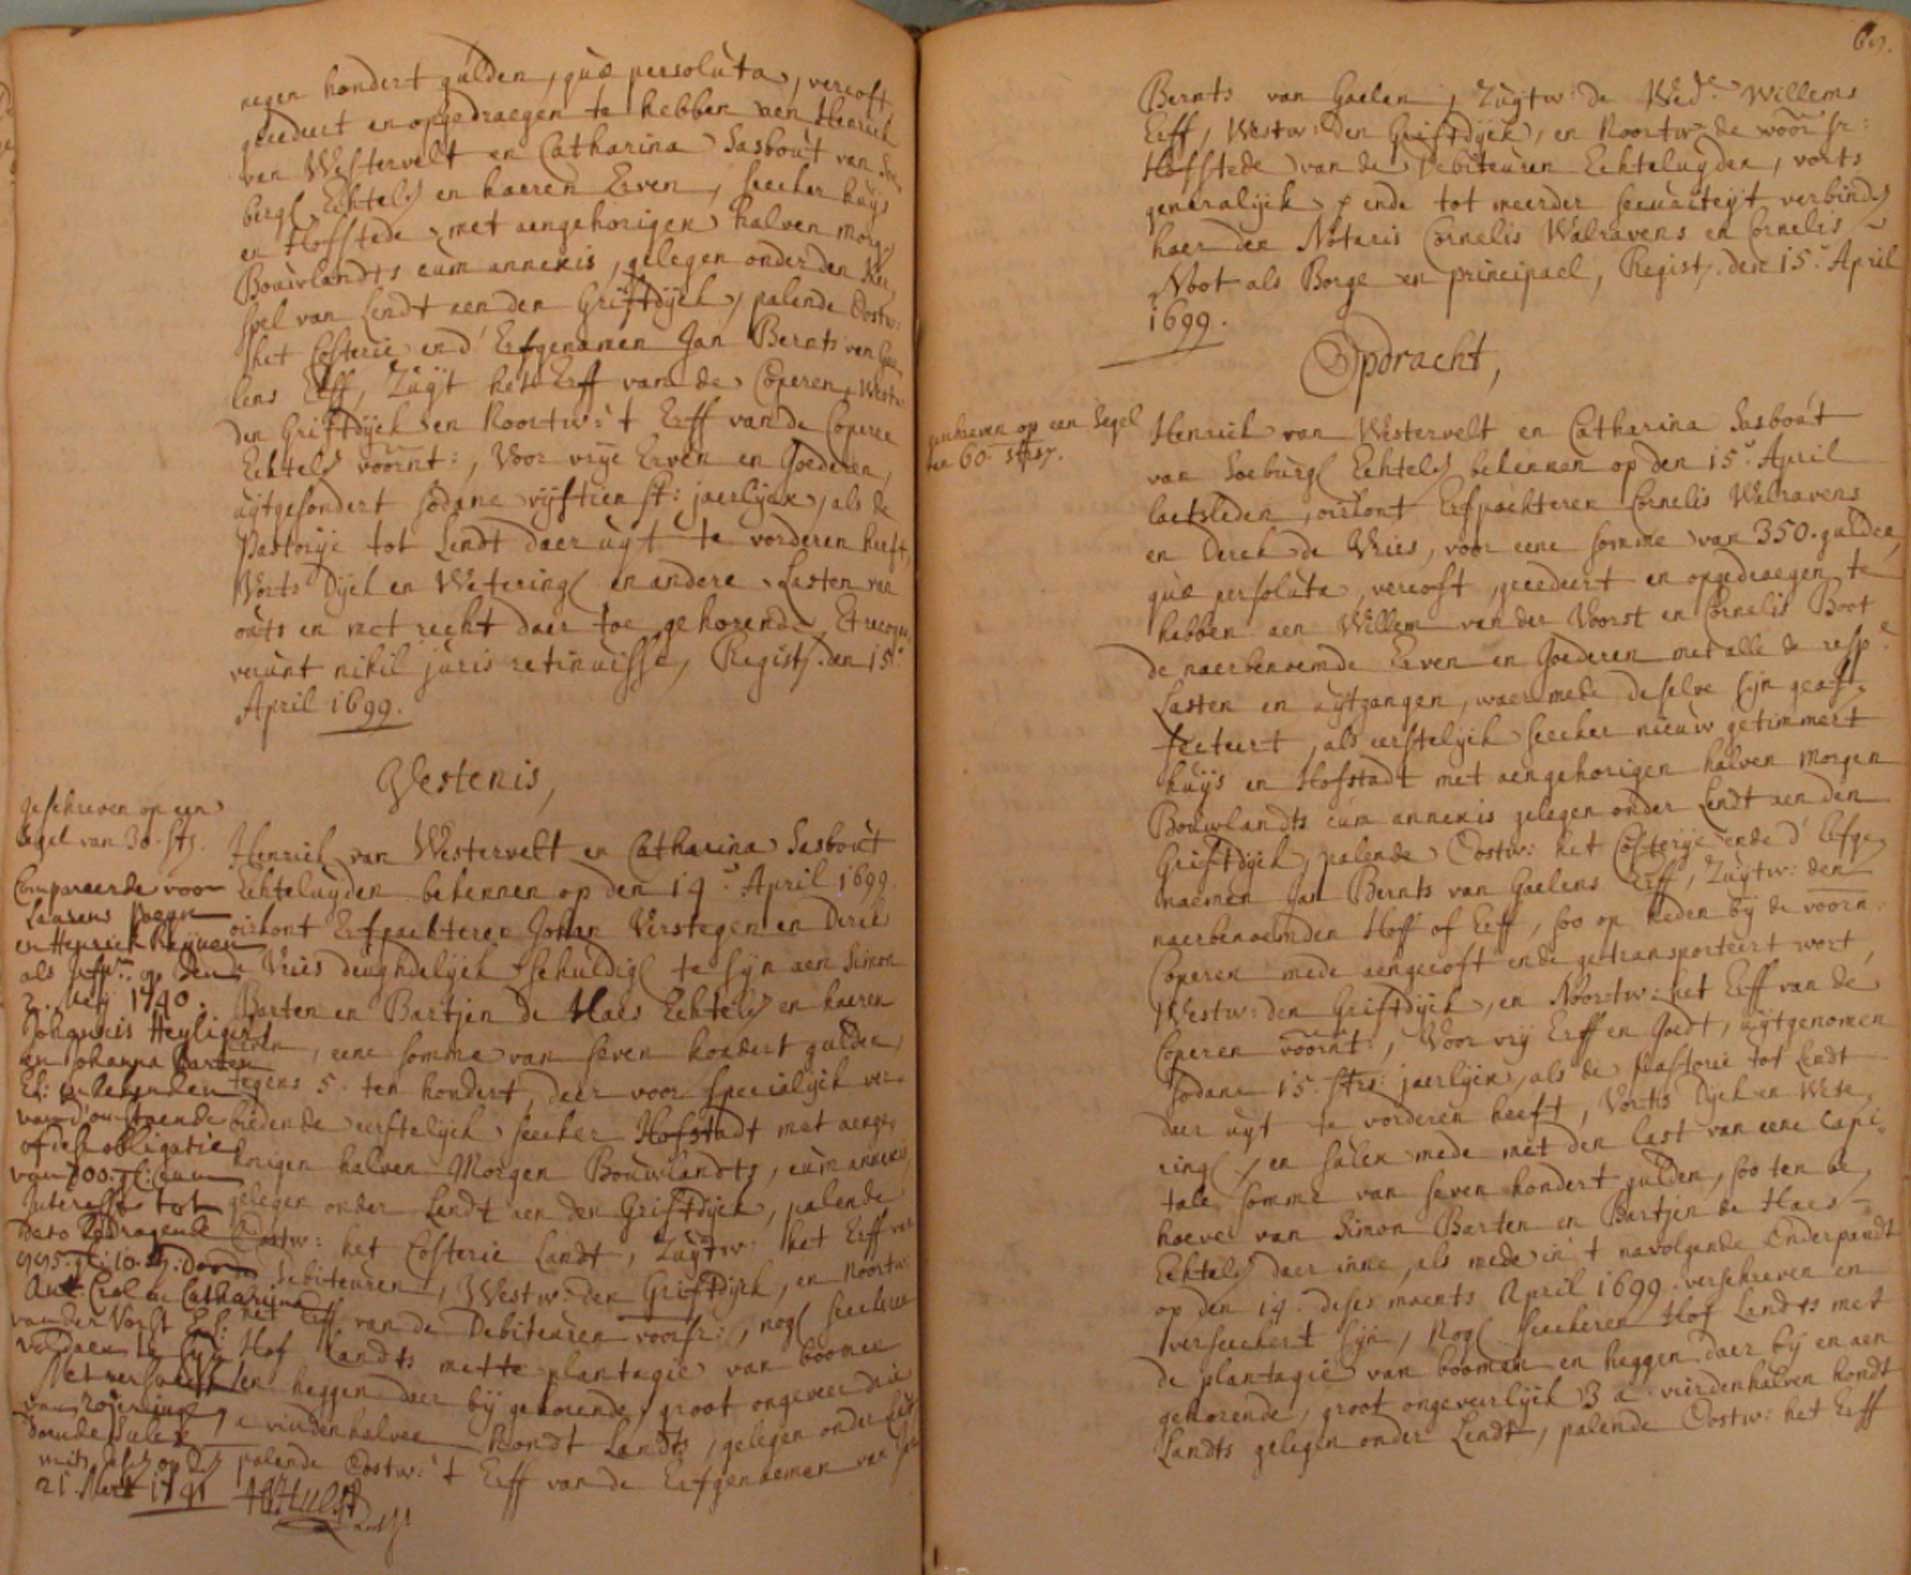 negen hondert gulden, quæ persoluta, vercoft
gecedeert en opgedraegen te hebben aen Henrick
van Westervelt en Catharina Sasbout van Soe
berg Echtel. en haeren Erven, seecker huijs
en Hofstede, met aengehorigen halven morg.
Bouwlandts cum annexis, gelegen onder den Ker
spel van Lendt aen den Griftdijck, palende Oostw:
het Costerie en d' Erfgenamen Jan Bernts van Gae
lens Erff, Zuijt het Erff van de Coperen, Westw:
den Griftdijck en Noortw: 't Erff van de Coperen
Echtel. voornt:, Voor vrije Erven en Goederen,
uijtgesondert sodane vijftien st: jaerlijcx, als de
Pastorije tot Lendt daer uijt te vorderen heeft,
Vorts Dijck en Wetering en andere Lasten van
outs en met recht daer toe gehorende, Et recogno
verunt nihil juris retinuisse, Regist. den 15.
April 1699.
Vestenis,
geschreven op een
Segel van 30. sts.
Henrick van Westervelt en Catharina Sasbout
Echteluyden bekennen op den 14. April 1699.
oirkont Erfpachteren Johan Verstegen en Derck
de Vries deughdelijck schuldig te sijn aen Simon
Barten en Bartjen de Haes Echtel. en haeren
Erven, eene somme van seven hondert gulden,
tegens 5. ten hondert, daer voor specialijck ver
bindende eerstelijck seecker Hofstadt met aenge
horigen halven Morgen Bouwlandts, cum annexis
gelegen onder Lendt aen den Griftdijck, palende
Oostw: het Costerie Landt, Zuijtw: het Erff van
Debiteuren, Westw: den Griftdijck, en Noortw:
het Erff van de Debiteuren voorsr:, nog seecker
Hof Landts mette plantagie van boomen
en heggen daer bij gehorende, groot ongeveer drie
a vierdenhalven hondt Landts, gelegen onder Lendt
palende Oostw: 't Erff van de Erfgenaemen van Jan
Compareerde voor
Laurens
en Henrick Reijnen
als op den
2. Meij 1740.
Johannis Heyligers
en Johanna Barten
El: en bekenden
van d'omstaende
obligatie
van 700. gl: cum
Interesse tot
Dato bedragende
995. gl: 10. st: door
Ant. Crol en Catharijna
van der Vorst Eel:
voldaen te sijn
Met versoeck
van roijeringe,
21. Meert 1741
69.
Bernts van Gaelen, Zuijtw: de Wed. Willems
Erff, Westw: den Griftdijck, en Noortw: de voorsr:
Hofstede van de Debiteuren Echteluyden, vorts
generalijck, ende tot meerder securiteijt verbind.
haer den Notaris Cornelis Walravens en Cornelis
Noot als Borge en principael, Regist. den 15. April
1699.
Opdracht,
geschreven op een Segel
van 60. stvs.
Henrick van Westervelt en Catharina Sasbout
van Soeburg Echtel. bekennen op den 15. April
laetsleden, oirkont Erfpachteren Cornelis Walravens
en Derck de Vries, voor eene somme van 350. gulden,
quæ persoluta, vercoft, gecedeert en opgedraegen te
hebben aen Willem van der Voorst en Cornelis Boot
de naerbenoemde Erven en Goederen met alle de resp.
Lasten en uijtgangen, waermede deselve sijn geaf
fecteert, als eerstelijck seecker nieuw getimmert
huijs en Hofstadt met aengehorigen halven Morgen
Bouwlandts cum annexis gelegen onder Lendt aen den
Griftdijck, palende Oostw: het Costerije ende d' Erfge
naemen Jan Bernts van Gaelens Erff, Zuijtw: den
naerbenoemden Hoff of Erff, soo op heden bij de voorn.
Coperen mede aengecoft ende getransporteert wort,
Westw: den Griftdijck, en Noortw: het Erff van de
Coperen voornt:, Voor vrij Erff en Goedt, uijtgenomen
sodane 15. sts: jaerlijcx, als de Pastorie tot Lendt
daer uijt te vorderen heeft, Vorts Dijck en Wete
ring, en sulex mede met den last van eene capi
tale somme van seven hondert gulden, soo ten be
hoeve van Simon Barten en Bartjen de Haes
Echtel. daer inne, als mede in 't navolgende Onderpandt
op den 14. deses maents April 1699. verschreven en
verseeckert sijn, Nog seeckeren Hof Landts met
de plantagie van boomen en heggen daer bij en aen
gehorende, groot ongeveerlijck 3 a vierdenhalven hondt
Landts gelegen onder Lendt, palende Oostw: het Erff